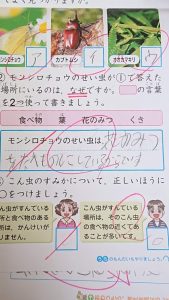 ア
カブトムシ
イ
オオカマキリ
ウ
②モンシロチョウのせい虫が①で答えた
場所にいるのは、なぜですか。
の言葉
を2つ使って書きましょう。
食べ物 葉 花のみつ くさ
モンシロチョウのせい虫は、花のみつ
を食べものにしているからです
こん虫のすみかについて、正しいほうに
○をつけましょう。
こん虫がすんでいる
場所と食べ物のある
場所は、かんけいが
ありません。
こん虫がすんでいる
場所は、そのこん虫
の食べ物の近くであ
ることが多いです。